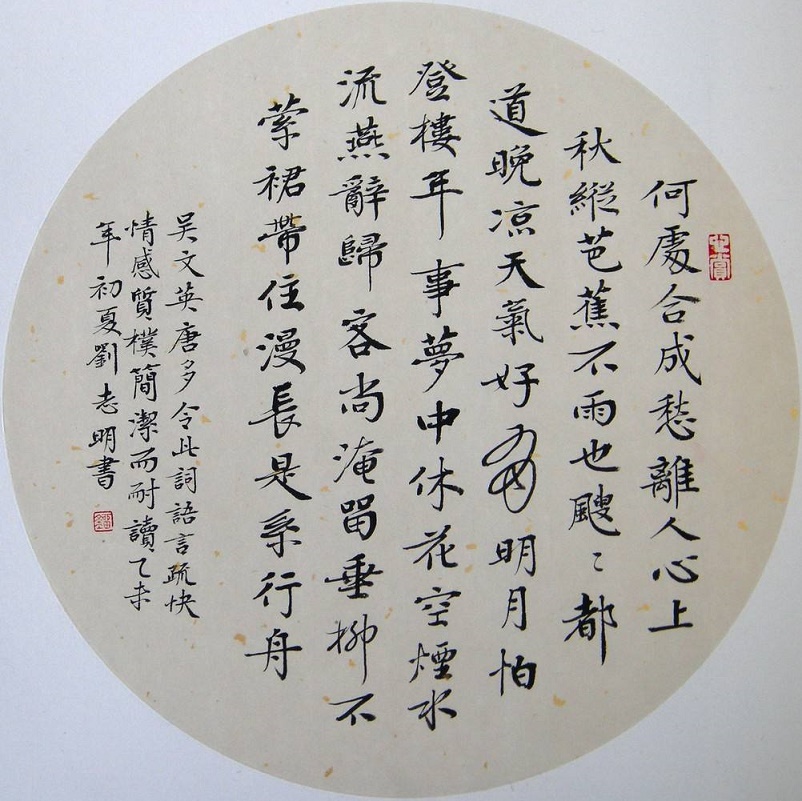 何處合成愁離人心上
秋縱芭蕉不雨也颼〻都
道晚涼天氣好有明月怕
登樓年事夢中休花空煙水
流燕辭歸客尚淹留垂柳不
縈裙帶住漫長是系行舟
吴文英唐多令此詞語言疏快
情感質樸簡潔而耐讀乙未
年初夏劉志明書